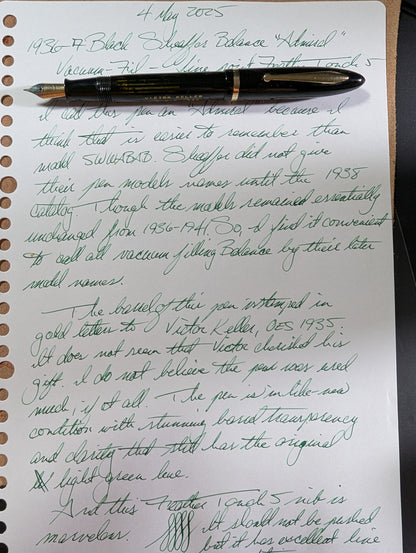 4 May 2025
1936-7 Black Sheaffer Balance "Admiral"
Vacuum-Fil - fine point Feather Touch 5
VICTOR KELLER
I call this pen an Admiral because I
think that is easier to remember than
model
Sheaffer did not give
their pen models names until the 1938
catalog. Though the models remained essentially
unchanged from 1936-1941. So, I find it convenient
to call all vacuum filling Balance by their later
model names.
The barrel of this pen is stamped in
gold letters to Victor Keller, OES 1935.
It does not seem that Victor cherished his
gift. I do not believe the pen was used
much, if at all. The pen is in like-new
condition with stunning barrel transparency
and clarity that still has the original
light green hue.
And this Feather Touch 5 nib is
marvelous. It should not be pushed
but it has excellent line